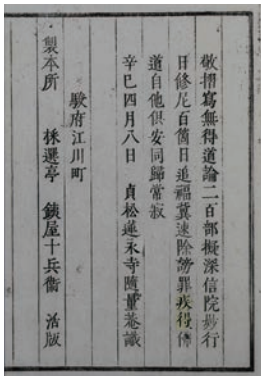 敬摺寫無得道論二百部擬深信院妙行
日修尼百箇日追福冀速除謗罪疾得佛
道自他俱安同歸常寂
辛巳四月八日　貞松蓮永寺隨量菴識
駿府江川町
製本所　採選亭　鉄屋十兵衛　活版